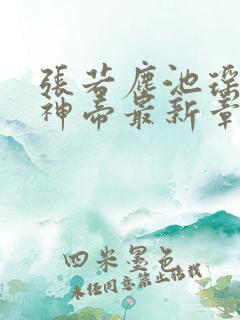 張若塵池瑤
神帝最新章
四米墨色
未经同意禁止转载